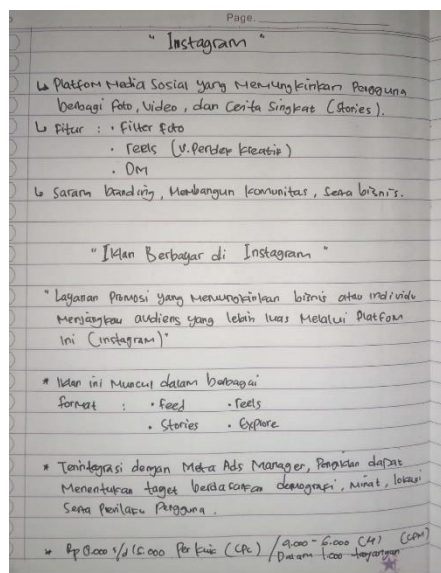 Page.
" Instagram "
↳ Platfom Media Sosial yang Memungkinkan Pengguna
berbagi foto, video, dan Cerita Singkat (Stories).
↳ Fitur : • Filter foto
• reels (V. Pendek kreatif)
• DM
↳ Sarana branding, Membangun komunitas, Serta bisnis.
" Iklan Berbayar di Instagram "
" Layanan Promosi yang Memungkinkan bisnis atau individu
Menjangkau audiens yang lebih luas Melalui Platfom
Ini (instagram)"
* Iklan ini Muncul dalam berbagai
format : • feed • reels
• Stories • Explore
* Terintegrasi dengan Meta Ads Manager, Pengiklan dapat
Menentukan taget berdasarkan demografi, Minat, lokasi
Serta Perilaku Pengguna.
* Rp s/d 15.000 Per klik (CPC) / - 6.000 (CPM)
Dalam 1.000 tayangan